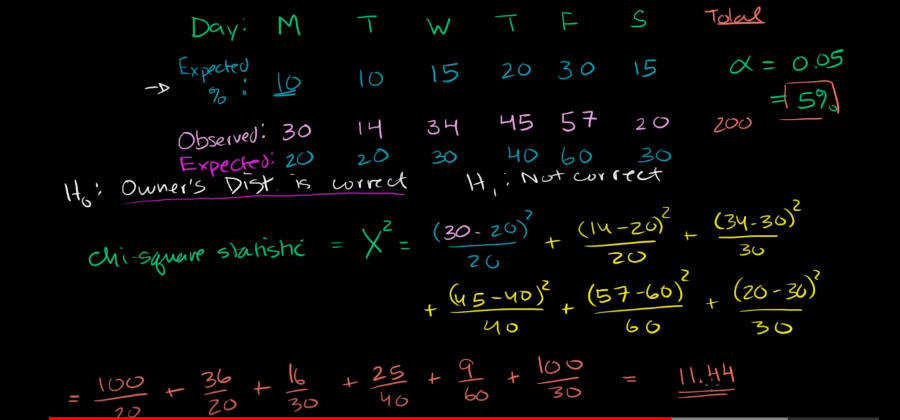 Day: M T W T F S Total
Expected %: 10 10 15 20 30 15
α = 0.05
= 5%
Observed: 30 14 34 45 57 20 200
Expected: 20 20 30 40 60 30
H₀: Owner's Dist. is correct H₁: Not correct
chi-square statistic = X² = (30-20)²/20 + (14-20)²/20 + (34-30)²/30
+ (45-40)²/40 + (57-60)²/60 + (20-30)²/30
= 100/20 + 36/20 + 16/30 + 25/40 + 9/60 + 100/30 = 11.44